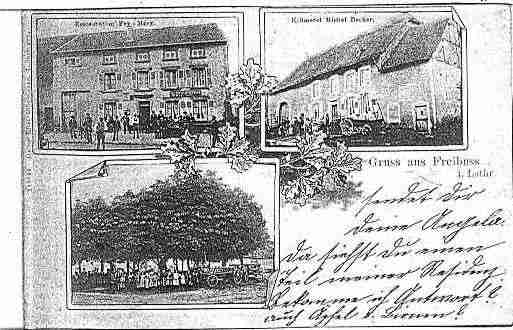 Restauration Fey-Mary.
Kolmeteri Michel Becker.
Gruss aus Freibuss
i. Lothr.
sendet Dir
deine Angela.
Da siehst Du einen
Teil meiner Residenz
bekomme ich Antwort?
auch Apfel u. Birnen?